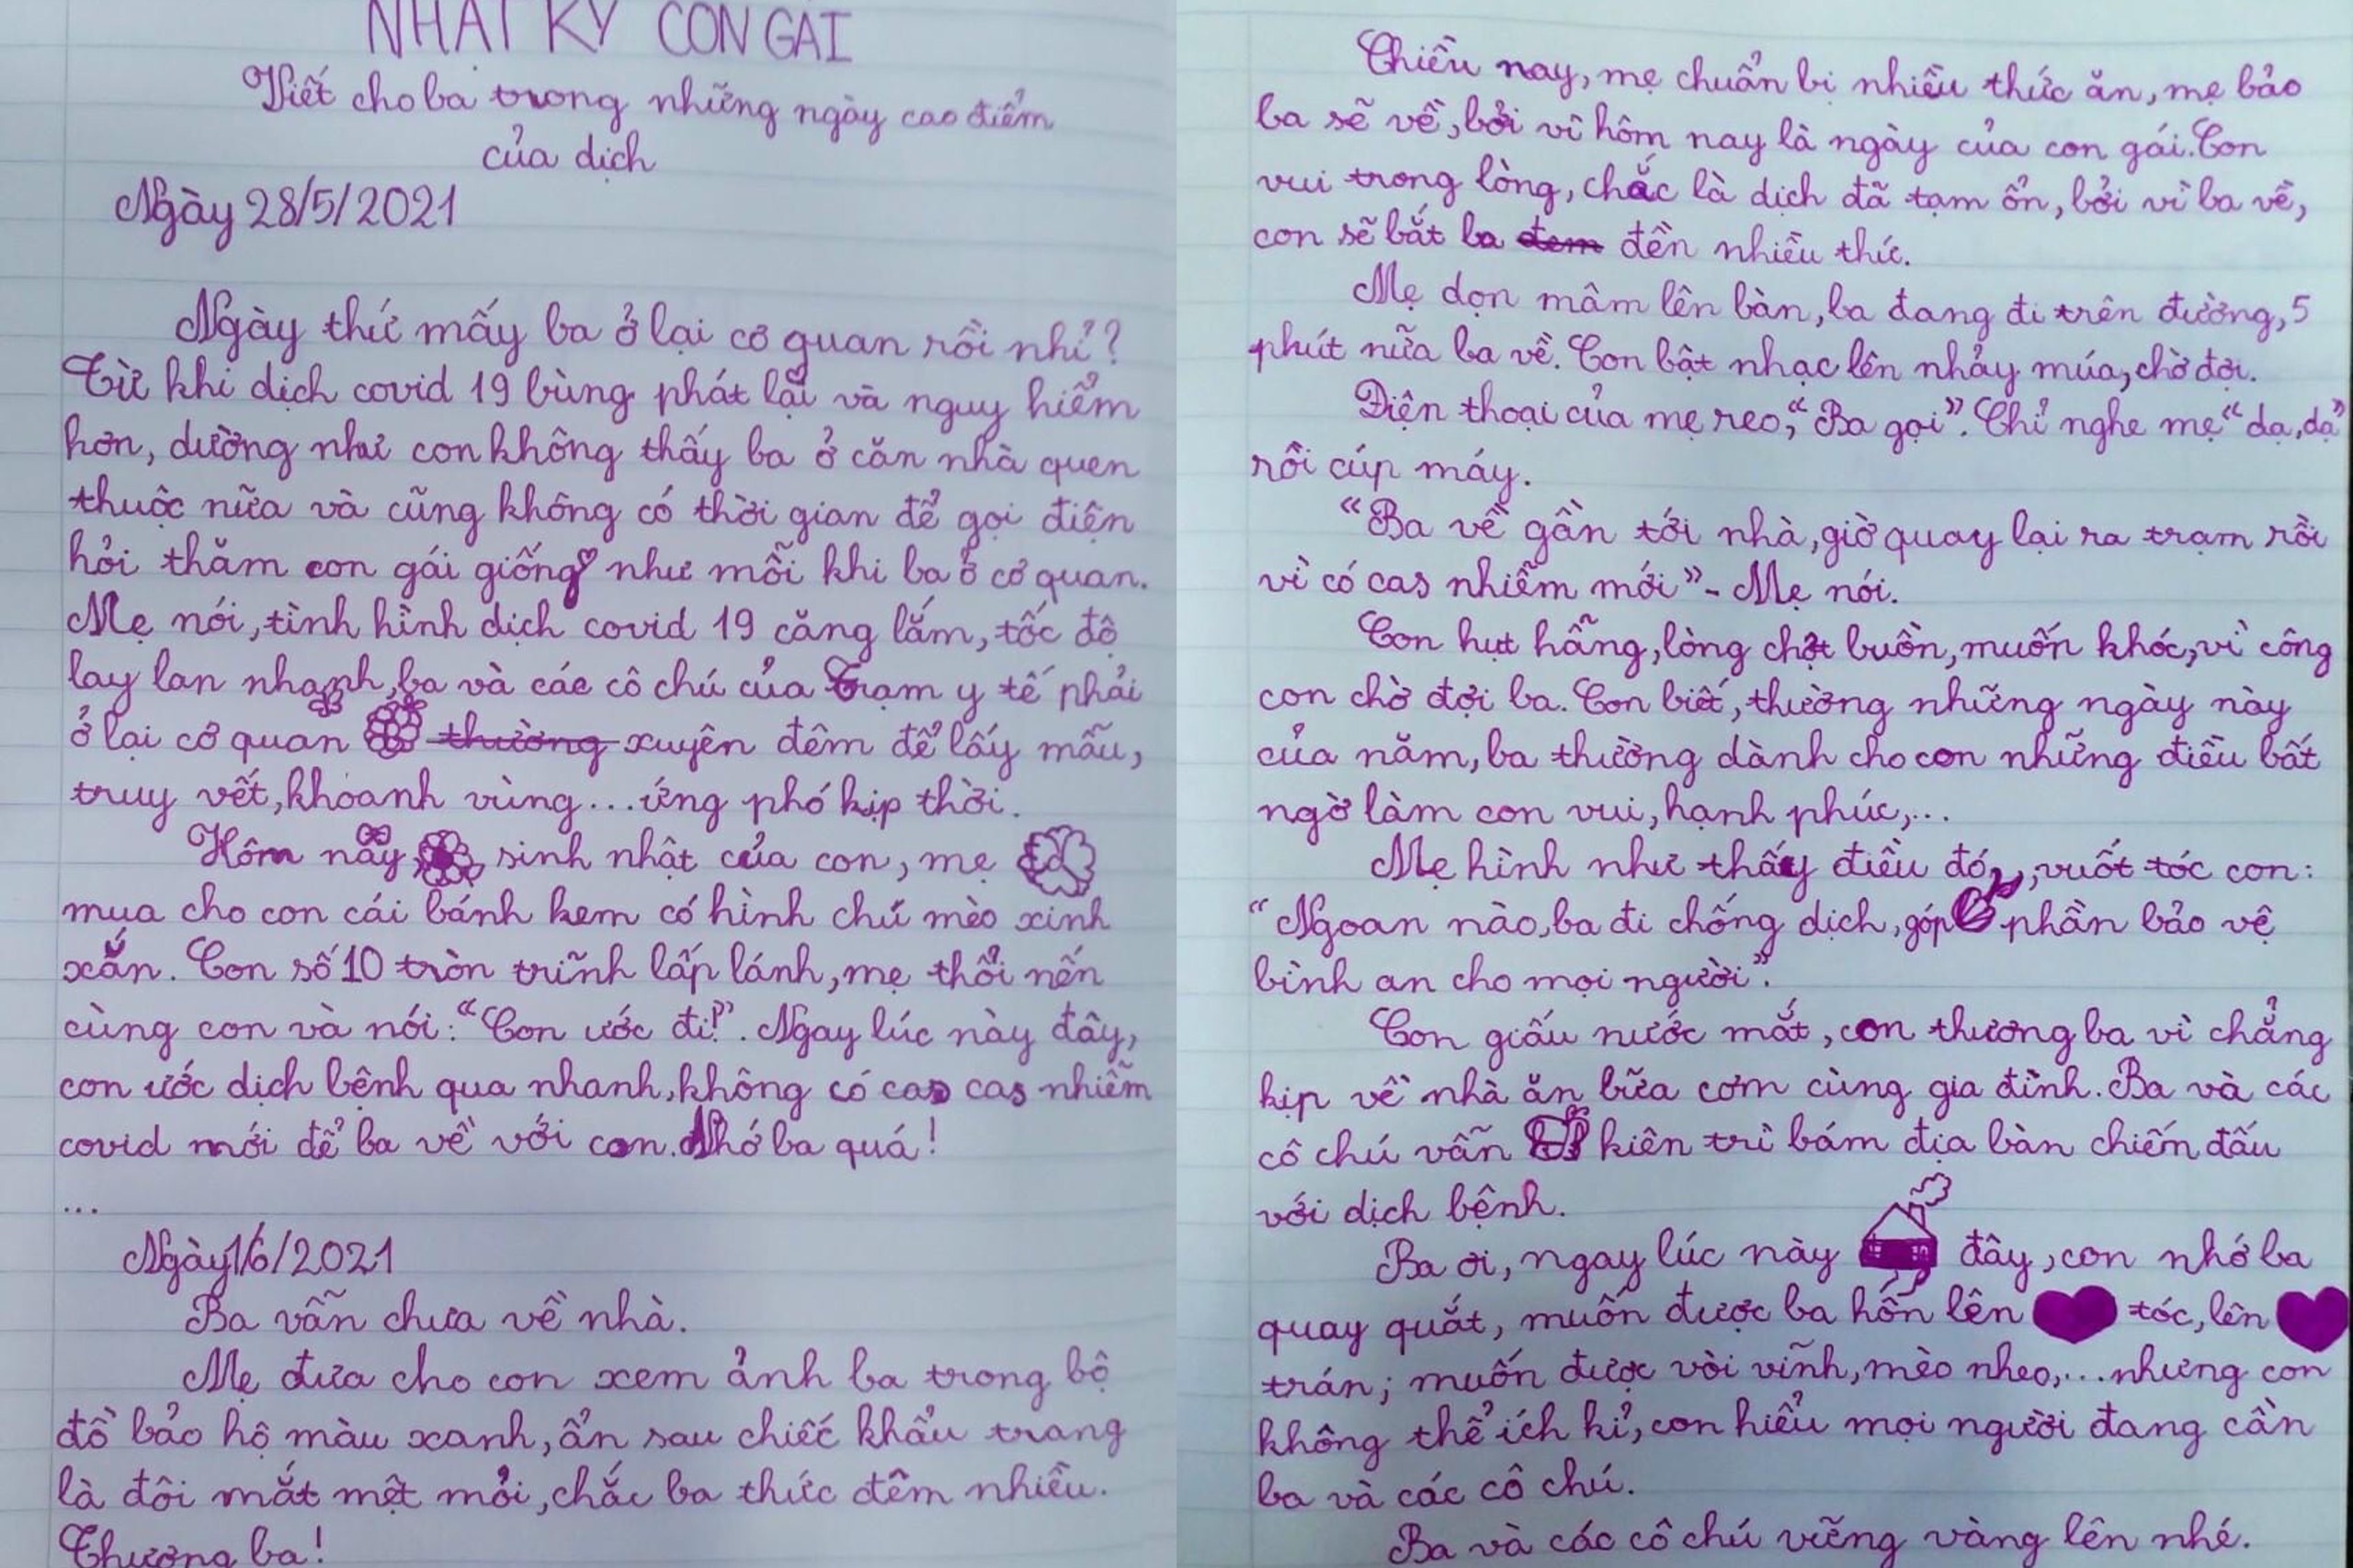 NHẬT KÝ CON GÁI
Viết cho ba trong những ngày cao điểm
của dịch
Ngày 28/5/2021
Ngày thứ mấy ba ở lại cơ quan rồi nhỉ?
Từ khi dịch covid 19 bùng phát lại và nguy hiểm
hơn, dường như con không thấy ba ở căn nhà quen
thuộc nữa và cũng không có thời gian để gọi điện
hỏi thăm con gái giống như mỗi khi ba ở cơ quan.
Mẹ nói, tình hình dịch covid 19 căng lắm, tốc độ
lay lan nhanh, ba và các cô chú của Trạm y tế phải
ở lại cơ quan thường xuyên đêm để lấy mẫu,
truy vết, khoanh vùng... ứng phó kịp thời.
Hôm nay, sinh nhật của con, mẹ
mua cho con cái bánh kem có hình chú mèo xinh
xắn. Con số 10 tròn trĩnh lấp lánh, mẹ thổi nến
cùng con và nói: "Con ước đi!". Ngay lúc này đây,
con ước dịch bệnh qua nhanh, không có cas cas nhiễm
covid mới để ba về với con. Nhớ ba quá!
...
Ngày 1/6/2021
Ba vẫn chưa về nhà.
Mẹ đưa cho con xem ảnh ba trong bộ
đồ bảo hộ màu xanh, ẩn sau chiếc khẩu trang
là đôi mắt mệt mỏi, chắc ba thức đêm nhiều.
Thương ba!
Chiều nay, mẹ chuẩn bị nhiều thức ăn, mẹ bảo
ba sẽ về, bởi vì hôm nay là ngày của con gái. Con
vui trong lòng, chắc là dịch đã tạm ổn, bởi vì ba về,
con sẽ bắt ba đem đền nhiều thứ.
Mẹ dọn mâm lên bàn, ba đang đi trên đường, 5
phút nữa ba về. Con bật nhạc lên nhảy múa, chờ đợi.
Điện thoại của mẹ reo, "Ba gọi". Chỉ nghe mẹ "dạ, dạ"
rồi cúp máy.
"Ba về gần tới nhà, giờ quay lại ra trạm rồi
vì có cas nhiễm mới" - Mẹ nói.
Con hụt hẫng, lòng chợt buồn, muốn khóc, vì công
con chờ đợi ba. Con biết, thường những ngày này
của năm, ba thường dành cho con những điều bất
ngờ làm con vui, hạnh phúc,...
Mẹ hình như thấy điều đó, vuốt tóc con:
"Ngoan nào, ba đi chống dịch, góp phần bảo vệ
bình an cho mọi người".
Con giấu nước mắt, con thương ba vì chẳng
kịp về nhà ăn bữa cơm cùng gia đình. Ba và các
cô chú vẫn kiên trì bám địa bàn chiến đấu
với dịch bệnh.
Ba ơi, ngay lúc này đây, con nhớ ba
quay quắt, muốn được ba hôn lên tóc, lên
trán; muốn được vòi vĩnh, mèo nheo,... nhưng con
không thể ích kỉ, con hiểu mọi người đang cần
ba và các cô chú.
Ba và các cô chú vững vàng lên nhé.